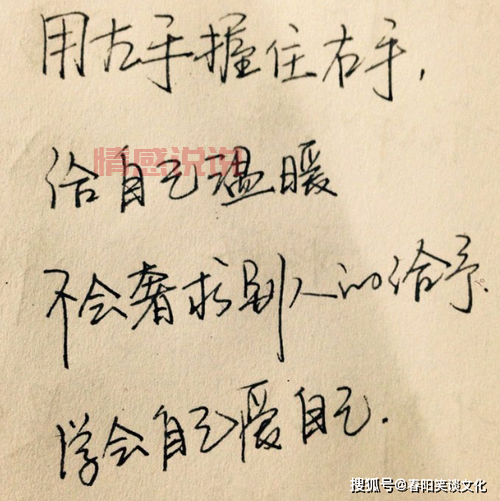 用左手握住右手,
情感说说
给自己温暖
不会奢求别人的给予.
学会自己爱自己.
搜狐号@春阳笑谈文化